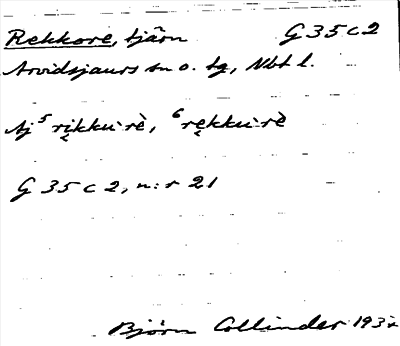 Rekkore, tjärn G 35 c 2
Arvidsjaurs sn o. tg, Nbt l.
Aj ⁵ri̮kku·rè, ⁶re̮kku·rè
G 35 c 2, n:r 21
Björn Collinder 193